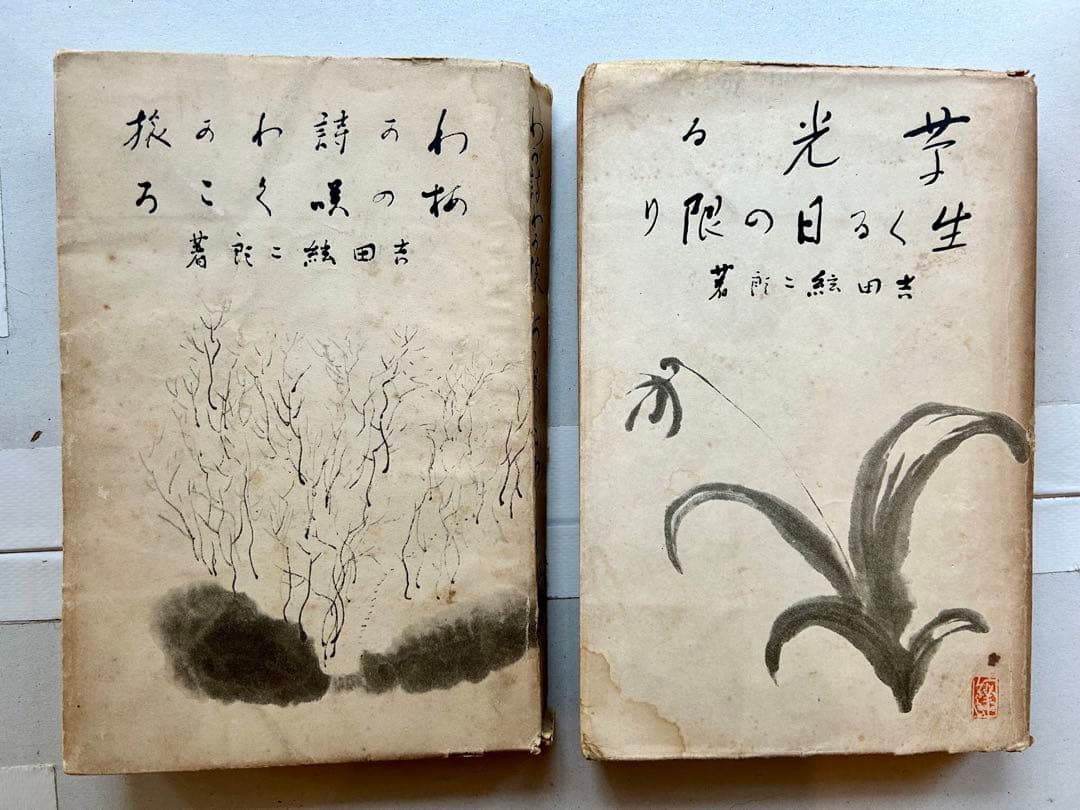 わか詩わか旅
梅の咲くころ
吉田絃二郎著
草光る
生くる日の限り
吉田絃二郎著